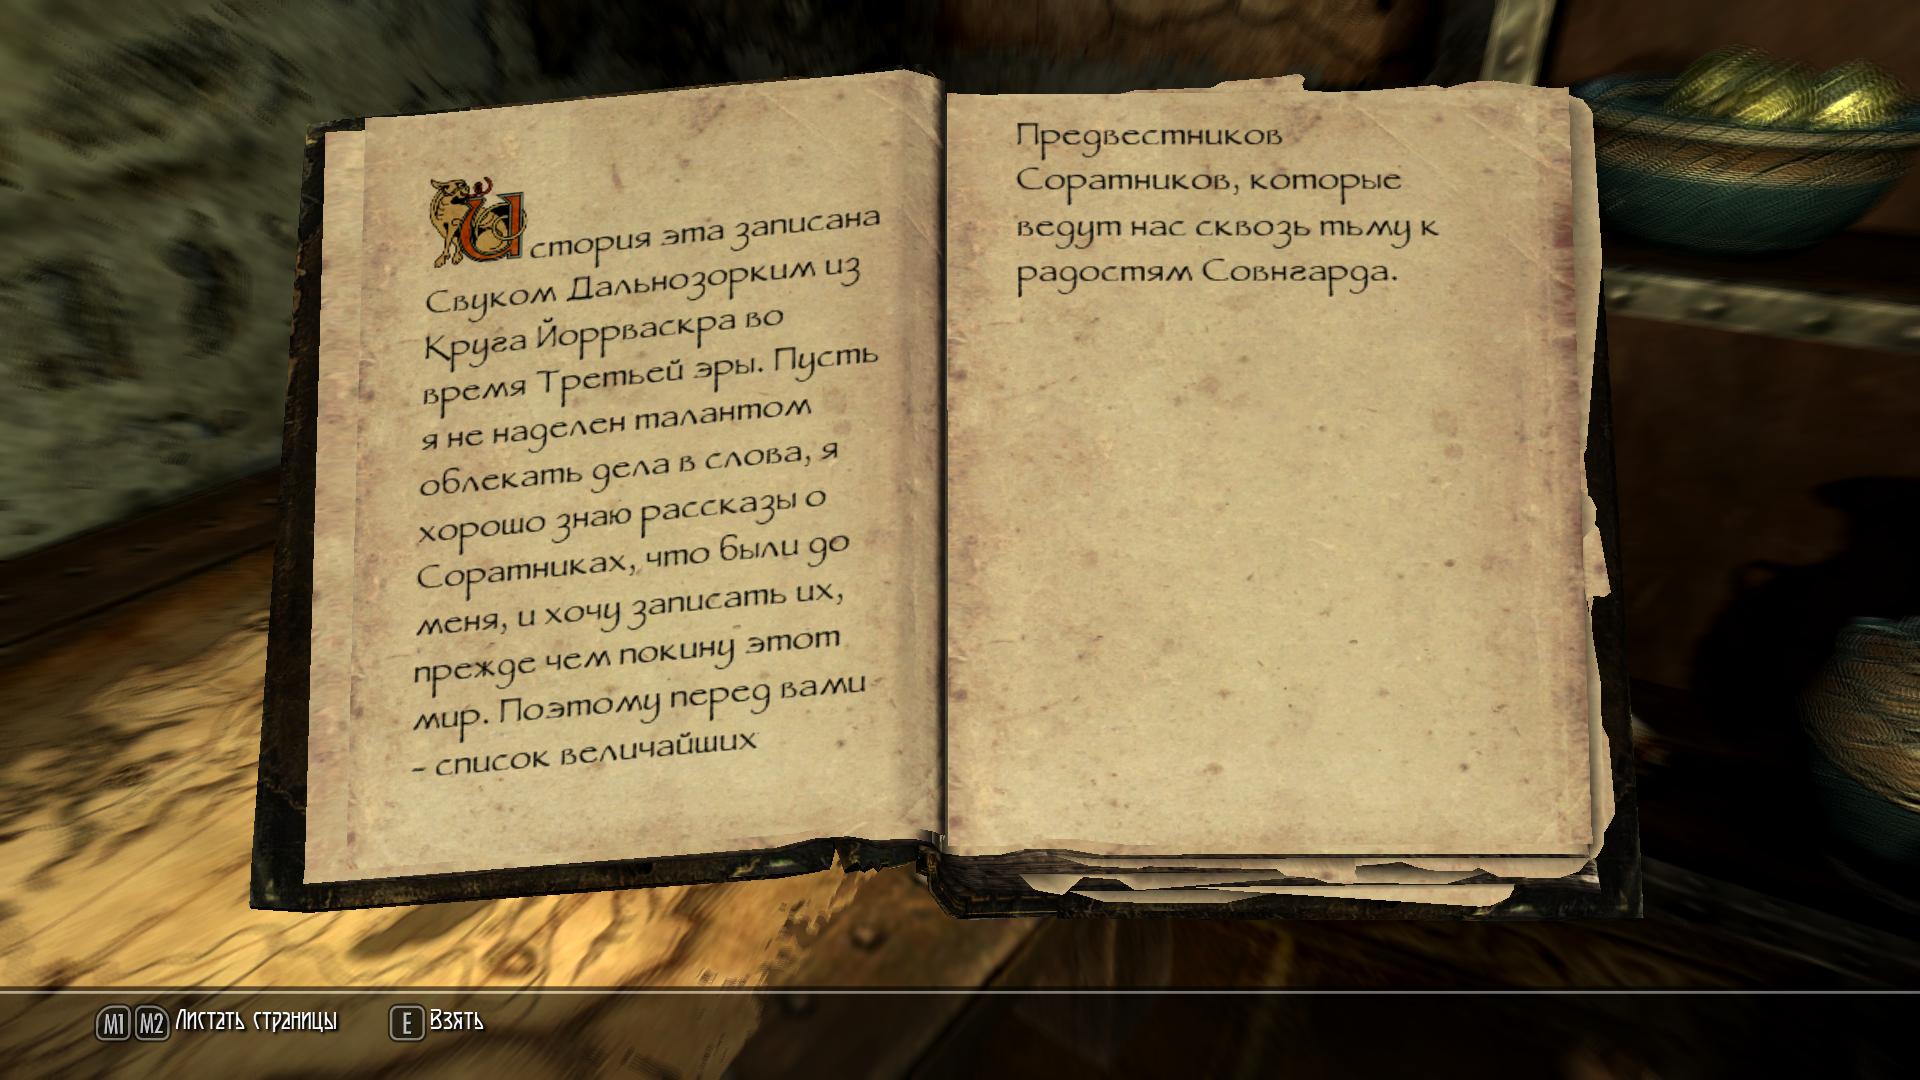 История эта записана
Свуком Дальнозорким из
Круга Йоррваскра во
время Третьей эры. Пусть
я не наделен талантом
облекать дела в слова, я
хорошо знаю рассказы о
Соратниках, что были до
меня, и хочу записать их,
прежде чем покину этот
мир. Поэтому перед вами
- список величайших
Предвестников
Соратников, которые
ведут нас сквозь тьму к
радостям Совнгарда.
M1 M2 Листать страницы E Взять